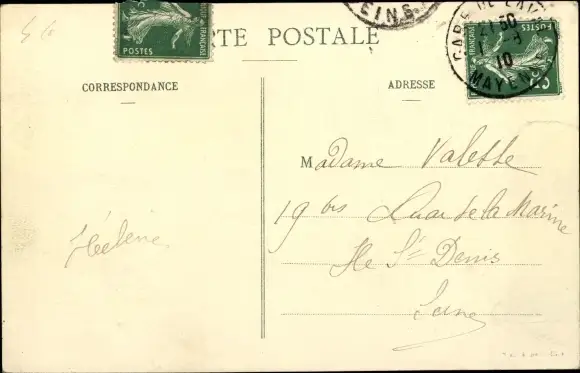 POSTES
RTE POSTALE
EINE
GARE DE LAVAL
21 50
1 - 
10
MAYENNE
CORRESPONDANCE
ADRESSE
Madame Valette
19 bis Quai de la Marine
Hélène
Ile St Denis
Seine